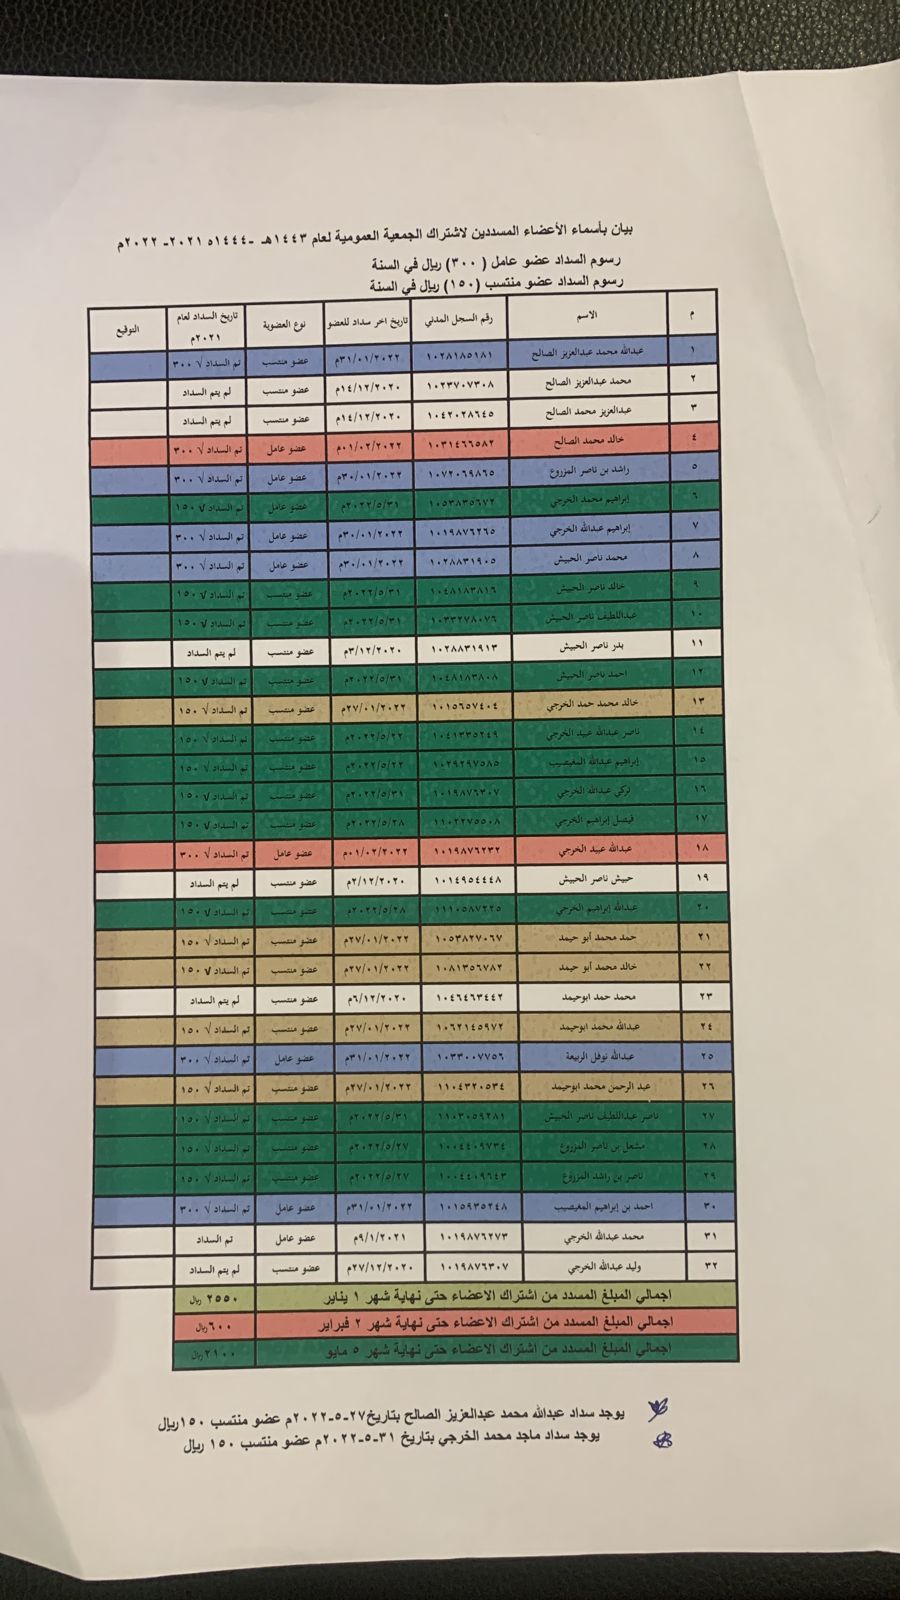 بيان بأسماء الأعضاء المسددين لاشتراك الجمعية العمومية لعام ١٤٤٣هـ -١٤٤٤ه ٢٠٢١- ٢٠٢٢م
رسوم السداد عضو عامل ( ٣٠٠) ريال في السنة
رسوم السداد عضو منتسب (١٥٠) ريال في السنة
م الاسم رقم السجل المدني تاريخ اخر سداد للعضو نوع العضوية تاريخ السداد لعام ٢٠٢١م التوقيع
١ عبدالله محمد عبدالعزيز الصالح ١٠٢٨١٨٥١٨١ ٣١/٠١/٢٠٢٢م عضو منتسب تم السداد √ ٣٠٠
٢ محمد عبدالعزيز الصالح ١٠٢٣٧٠٧٣٠٨ ١٤/١٢/٢٠٢٠م عضو منتسب لم يتم السداد
٣ عبدالعزيز محمد الصالح ١٠٤٢٠٢٨٦٤٥ ١٤/١٢/٢٠٢٠م عضو منتسب لم يتم السداد
٤ خالد محمد الصالح ١٠٣١٤٦٦٥٨٢ ٠١/٠٢/٢٠٢٢م عضو عامل تم السداد √ ٣٠٠
٥ راشد بن ناصر المزروع ١٠٧٢٠٦٩٨٦٥ ٣٠/٠١/٢٠٢٢م عضو عامل تم السداد √ ٣٠٠
٦ إبراهيم محمد الخرجي ١٠٥٣٨٣٥٦٧٢ ٢٠٢٢/٥/٣١م عضو عامل تم السداد √ ١٥٠
٧ إبراهيم عبدالله الخرجي ١٠١٩٨٧٦٢٦٥ ٣٠/٠١/٢٠٢٢م عضو عامل تم السداد √ ٣٠٠
٨ محمد ناصر الحبيش ١٠٢٨٨٣١٩٠٥ ٣٠/٠١/٢٠٢٢م عضو عامل تم السداد √ ٣٠٠
٩ خالد ناصر الحبيش ١٠٤٨١٨٣٨١٦ ٢٠٢٢/٥/٣١م عضو منتسب تم السداد √ ١٥٠
١٠ عبداللطيف ناصر الحبيش ١٠٣٣٢٧٨٠٧٦ ٢٠٢٢/٥/٣١م عضو منتسب تم السداد √ ١٥٠
١١ بدر ناصر الحبيش ١٠٢٨٨٣١٩١٣ ٣/١٢/٢٠٢٠م عضو منتسب لم يتم السداد
١٢ احمد ناصر الحبيش ١٠٤٨١٨٣٨٠٨ ٢٠٢٢/٥/٣١م عضو منتسب تم السداد √ ١٥٠
١٣ خالد محمد حمد الخرجي ١٠١٥٦٥٧٤٠٤ ٢٧/٠١/٢٠٢٢م عضو منتسب تم السداد √ ١٥٠
١٤ ناصر عبدالله عبيد الخرجي ١٠٤١٣٣٥٢٤٩ ٢٠٢٢/٥/٢٢م عضو منتسب تم السداد √ ١٥٠
١٥ إبراهيم عبدالله المغيصيب ١٠٢٩٢٩٧٥٨٥ ٢٠٢٢/٥/٢٢م عضو منتسب تم السداد √ ١٥٠
١٦ تركي عبدالله الخرجي ١٠١٩٨٧٦٣٠٧ ٢٠٢٢/٥/٣١م عضو منتسب تم السداد √ ١٥٠
١٧ فيصل إبراهيم الخرجي ١١٠٢٢٧٥٥٠٨ ٢٠٢٢/٥/٢٨م عضو منتسب تم السداد √ ١٥٠
١٨ عبدالله عبيد الخرجي ١٠١٩٨٧٦٢٣٢ ٠١/٠٢/٢٠٢٢م عضو عامل تم السداد √ ٣٠٠
١٩ حبيش ناصر الحبيش ١٠١٤٩٥٤٤٤٨ ٢/١٢/٢٠٢٠م عضو منتسب لم يتم السداد
٢٠ عبدالله إبراهيم الخرجي ١١١٠٥٨٧٢٢٥ ٢٠٢٢/٥/٢٨م عضو منتسب تم السداد √ ١٥٠
٢١ حمد محمد أبو حيمد ١٠٥٣٨٢٧٠٦٧ ٢٧/٠١/٢٠٢٢م عضو منتسب تم السداد √ ١٥٠
٢٢ خالد محمد أبو حيمد ١٠٨١٣٥٦٧٨٢ ٢٧/٠١/٢٠٢٢م عضو منتسب تم السداد √ ١٥٠
٢٣ محمد حمد ابوحيمد ١٠٤٦٤٦٣٤٤٢ ٦/١٢/٢٠٢٠م عضو منتسب لم يتم السداد
٢٤ عبدالله محمد ابوحيمد ١٠٦٢١٤٥٩٧٢ ٢٧/٠١/٢٠٢٢م عضو منتسب تم السداد √ ١٥٠
٢٥ عبدالله نوفل الربيعة ١٠٣٣٠٠٧٧٥٦ ٣١/٠١/٢٠٢٢م عضو عامل تم السداد √ ٣٠٠
٢٦ عبد الرحمن محمد ابوحيمد ١١٠٤٣٢٠٥٣٤ ٢٧/٠١/٢٠٢٢م عضو منتسب تم السداد √ ١٥٠
٢٧ ناصر عبداللطيف ناصر الحبيش ١١٠٣٠٥٩٢٨١ ٢٠٢٢/٥/٣١م عضو منتسب تم السداد √ ١٥٠
٢٨ مشعل بن ناصر المزروع ١٠٠٤٤٠٩٧٣٤ ٢٠٢٢/٥/٢٧م عضو منتسب تم السداد √ ١٥٠
٢٩ ناصر بن راشد المزروع ١٠٠٤٤٠٩٦٤٣ ٢٠٢٢/٥/٢٧م عضو منتسب تم السداد √ ١٥٠
٣٠ احمد بن إبراهيم المغيصيب ١٠١٥٩٣٥٢٤٨ ٣١/٠١/٢٠٢٢م عضو عامل تم السداد √ ٣٠٠
٣١ محمد عبدالله الخرجي ١٠١٩٨٧٦٢٧٣ ٩/١/٢٠٢١م عضو عامل تم السداد
٣٢ وليد عبدالله الخرجي ١٠١٩٨٧٦٣٠٧ ٢٧/١٢/٢٠٢٠م عضو منتسب لم يتم السداد
اجمالي المبلغ المسدد من اشتراك الاعضاء حتى نهاية شهر ١ يناير ٢٥٥٠ ريال
اجمالي المبلغ المسدد من اشتراك الاعضاء حتى نهاية شهر ٢ فبراير ٦٠٠ ريال
اجمالي المبلغ المسدد من اشتراك الاعضاء حتى نهاية شهر ٥ مايو ٢١٠٠ ريال
يوجد سداد عبدالله محمد عبدالعزيز الصالح بتاريخ ٢٧-٥-٢٠٢٢م عضو منتسب ١٥٠ريال
يوجد سداد ماجد محمد الخرجي بتاريخ ٣١-٥-٢٠٢٢م عضو منتسب ١٥٠ ريال